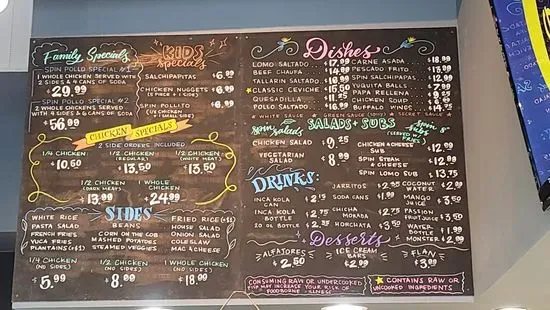 Family Specials
SPIN POLLO SPECIAL #1
1 WHOLE CHICKEN SERVED WITH
2 SIDES & 4 CANS OF SODA
$29.99
SPIN POLLO SPECIAL #2
2 WHOLE CHICKENS SERVED
WITH 4 SIDES & 6 CANS OF SODA
$56.99
KIDS
specials
SALCHIPAPITAS $6.99
CHICKEN NUGGETS $6.99
(6 PIECE + 1 SIDE)
SPIN POLLITO $6.99
(1/4 CHICKEN
+ 1 SMALL SIDE)
CHICKEN SPECIALS
2 SIDE ORDERS INCLUDED
1/4 CHICKEN
$10.50
1/2 CHICKEN
(REGULAR)
$13.50
1/2 CHICKEN
(WHITE MEAT)
$13.50
1/2 CHICKEN
(DARK MEAT)
$13.99
WHOLE
CHICKEN
$24.99
SIDES
WHITE RICE
PASTA SALAD
FRENCH FRIES
YUCA FRIES
PLANTAINS (+$1)
BEANS
CORN ON THE COB
MASHED POTATOES
STEAMED VEGGIES
FRIED RICE (+$1)
HOUSE SALAD
ONION SALAD
COLE SLAW
MAC & CHEESE
1/4 CHICKEN
(NO SIDES)
$5.99
1/2 CHICKEN
(NO SIDES)
$8.00
1 WHOLE CHICKEN
(NO SIDES)
$18.00
Dishes
LOMO SALTADO $17.99
BEEF CHAUFA
TALLARIN SALTADO
CLASSIC CEVICHE
QUESADILLA
SALTIPOLLO
CARNE ASADA $18.99
PESCADO FRITO
SPIN SALCHIPAPAS $12.99
YUQUITA BALLS
PAPA RELLENA
CHICKEN SOUP
BUFFALO WINGS $14.75
WHITE SAUCE GREEN SAUCE SECRET SAUCE
spin salads
SALADS + SUBS
CHICKEN SALAD $9.25
VEGETARIAN
SALAD $8.99
CHICKEN & CHEESE
SUB $12.99
SPIN STEAK
& CHEESE $12.99
SPIN LOMO SUB $13.75
DRINKS:
INCA KOLA
CAN $2.15
INCA KOLA
BOTTLE
20 OZ BOTTLE
JARRITOS
SODA CANS
CHICHA
MORADA
HORCHATA $3.50
COCONUT
WATER
MANGO
JUICE
PASSION
FRUIT JUICE $3.50
WATER
BOTTLE
MONSTER $2.99
Desserts
ALFAJORES
$2.50
ICE CREAM
BARS
$2.99
FLAN
$3.99
CONSUMING RAW OR UNDERCOOKED
FISH MAY INCREASE YOUR RISK OF
FOODBORNE ILLNESS
CONTAINS RAW OR
UNCOOKED INGREDIENTS